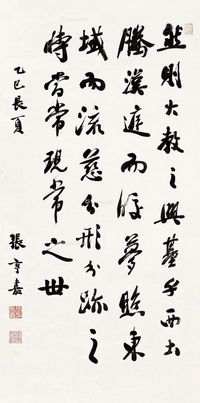 然則大教之興基乎西土
騰漢庭而皎夢照東
域而流慈分形分跡之
時當常現常之世
乙巳長夏
張亨嘉